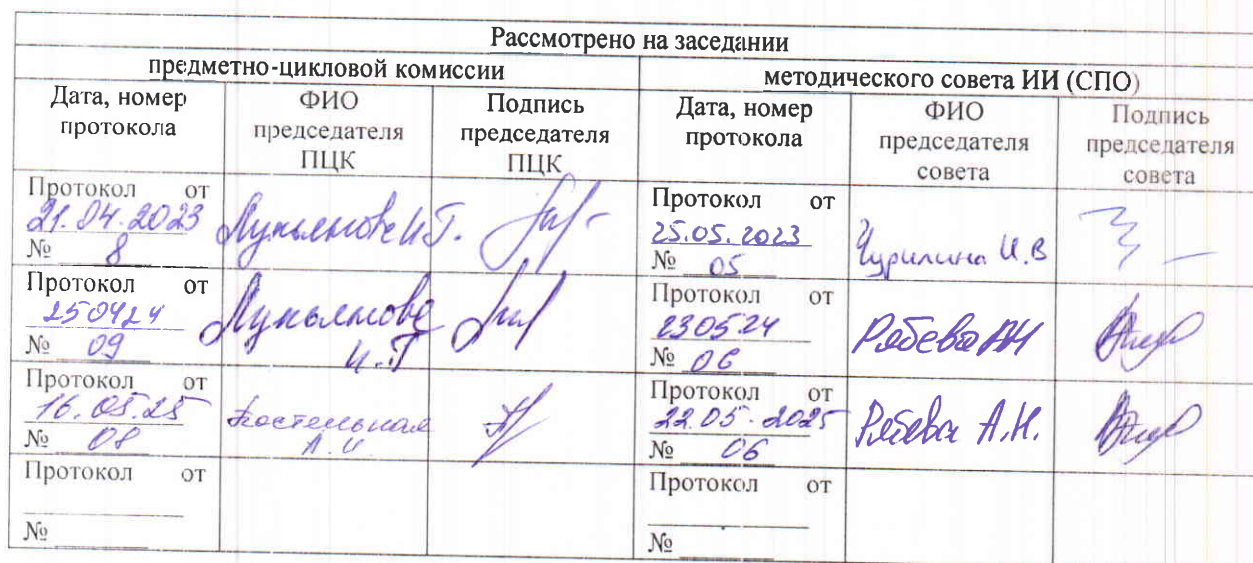 Рассмотрено на заседании
предметно-цикловой комиссии
методического совета ИИ (СПО)
Дата, номер
протокола
ФИО
председателя
ПЦК
Подпись
председателя
ПЦК
Дата, номер
протокола
ФИО
председателя
совета
Подпись
председателя
совета
Протокол от
21.04.2023
№ 8
Лукьянова И.Г.
Протокол от
25.05.2023
№ 05
Чурилина И.В
Протокол от
250424
№ 09
Лукьянова
И.Г
Протокол от
230524
№ 06
Рябева АН
Протокол от
16.05.25
№ 08
Костельная
А.И
Протокол от
22.05.2025
№ 06
Рябева А.Н.
Протокол от
№
Протокол от
№